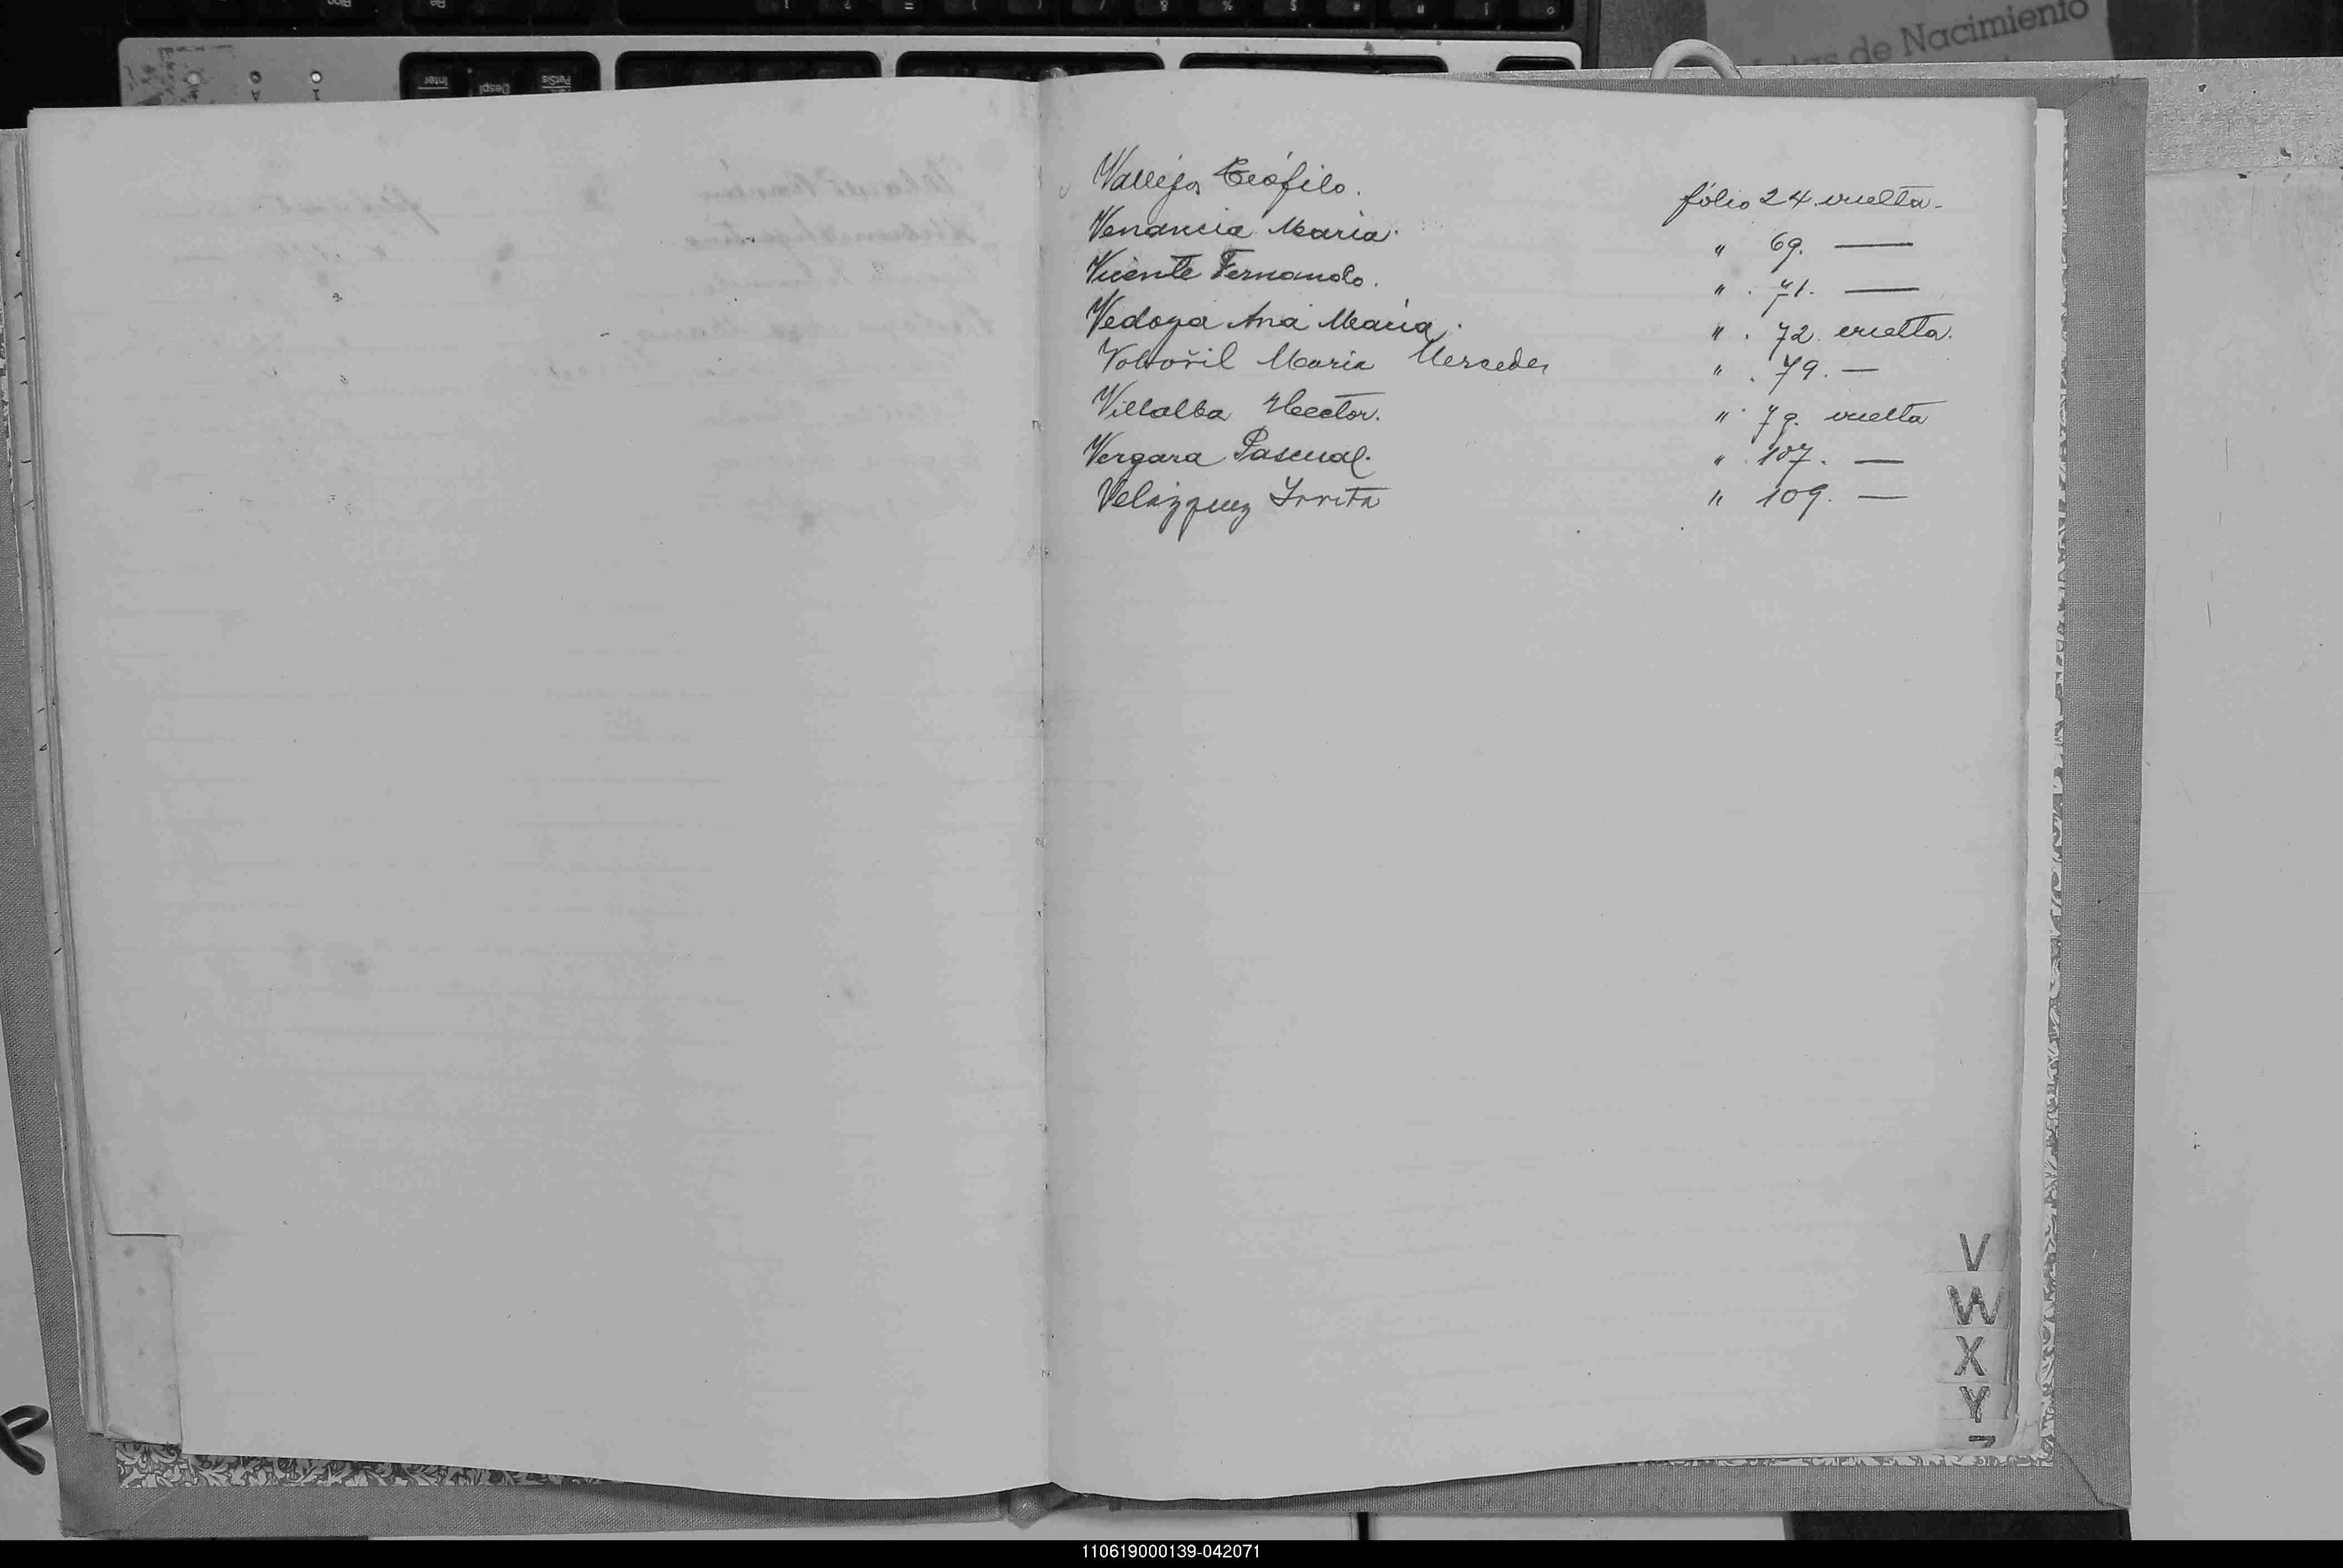 de Nacimiento
Vallejos Teófilo. fólio 24 vuelta.
Venancia María. " 69. —
Vicente Fernando. " . 71. —
Vedoya Ana María. " . 72. vuelta.
María Mercedes " . 79. —
Villalba Hector. " . 79. vuelta
Vergara Pascual. " . 107. —
Velázquez " 109. —
V
W
X
Y
Z
110619000139-042071